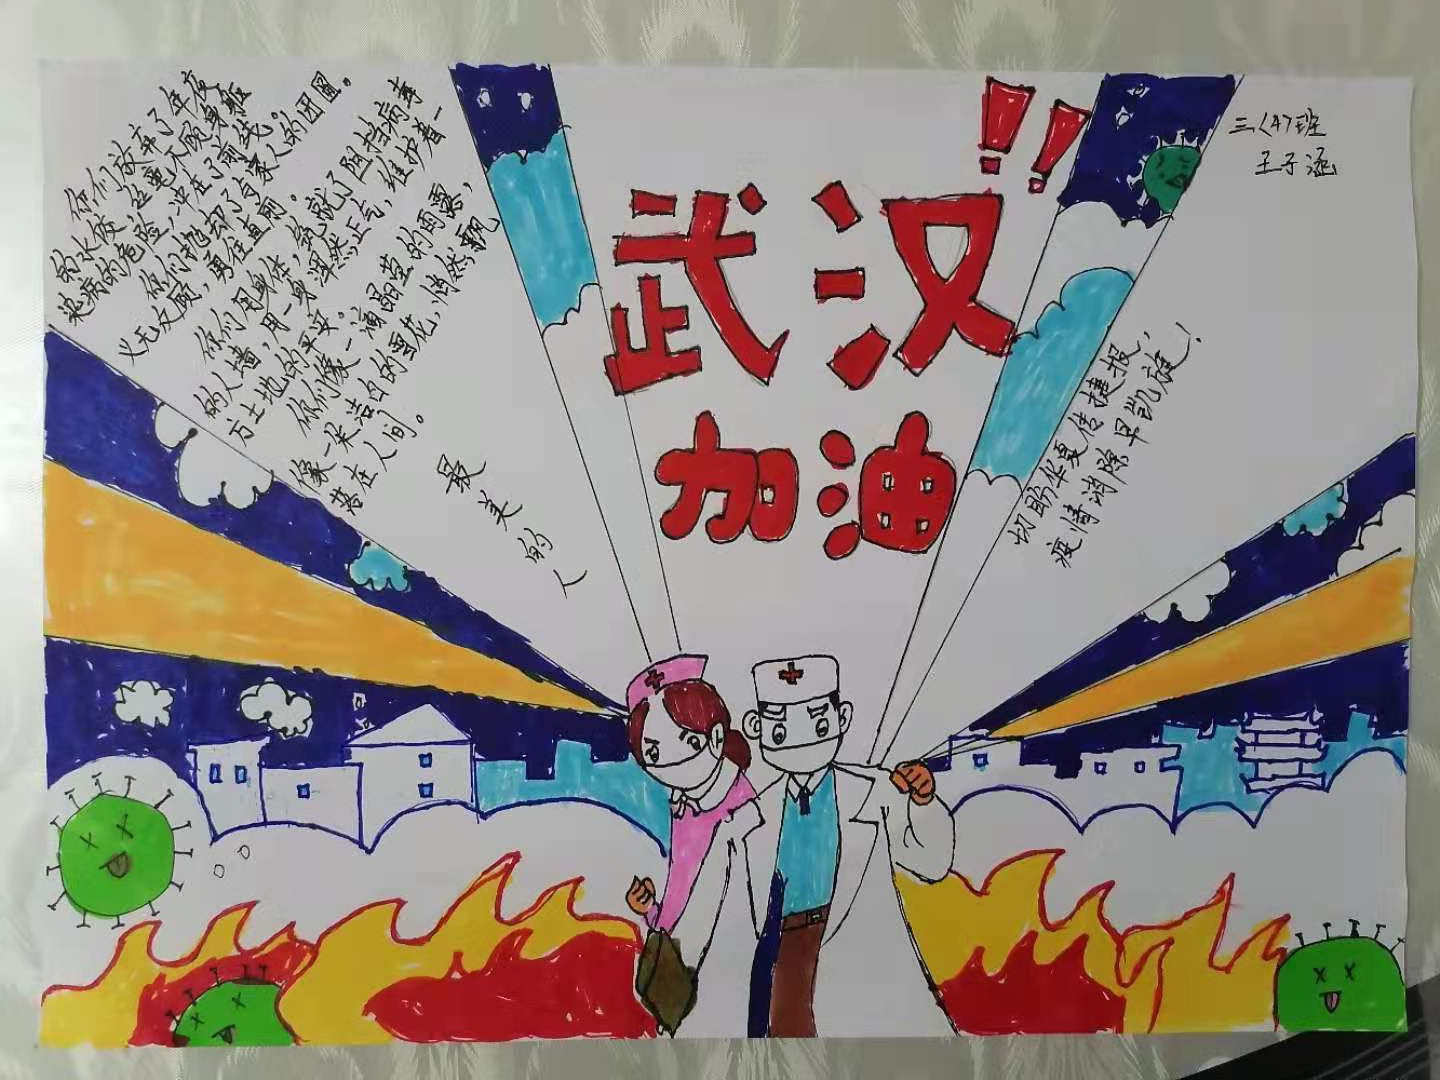 武汉
加油!!
三〈4〉班
王子涵
你们放弃了年夜
的水饺,丝毫不顾身躯
病的危险,冲在了前线。
你们抛却了与家人的团圆。
义无反顾,勇往直前。
你们用身体,筑就了阻挡病毒
的人墙,用一身浑然正气,维护着一
方土地的平安。
你们像一滴晶莹的雨露,
像一朵洁白的雪花,悄然飘
落在人间。
最美的人
切盼华夏传捷报,
疫情消除早凯旋!